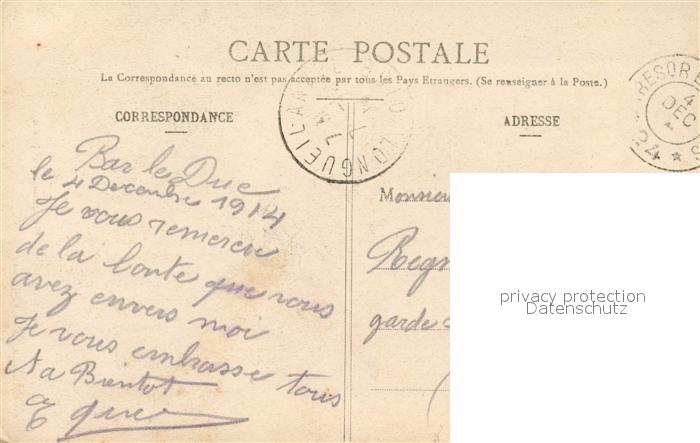 CARTE POSTALE
La Correspondance au recto n'est pas acceptée par tous les Pays Etrangers. (Se renseigner à la Poste.)
CORRESPONDANCE
ADRESSE
LONGUEIL-AN
TRESOR
4
DEC
Bar le Duc
le 4 Decembre 1914
Je vous remercie
de la bonte que vous
avez envers moi
Je vous embrasse tous
A Bientot
Monsieur
Regn
garde
privacy protection
Datenschutz